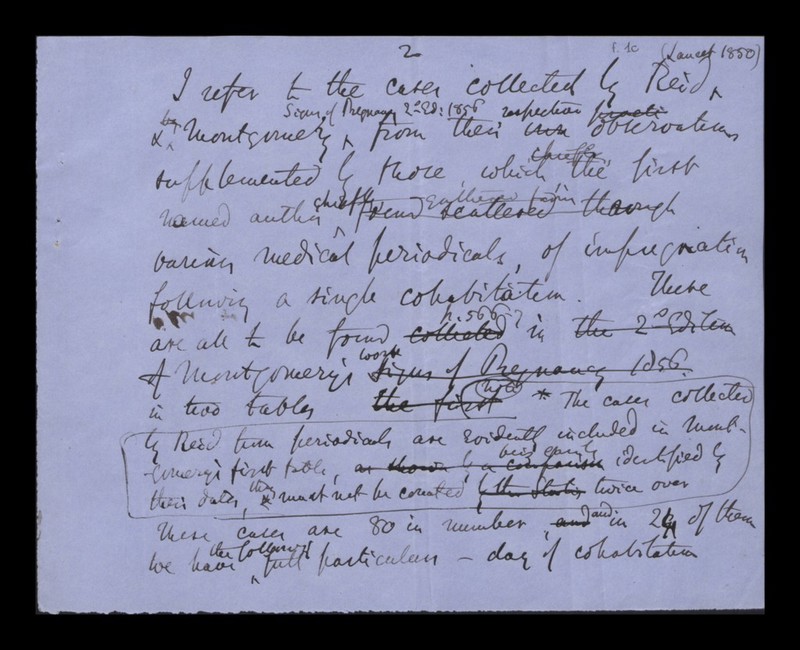 2
f. 1c (Lancet 1850)
I refer to the cases collected by Reid,
Signs of Pregnancy 2nd Ed: 1856 respective
& by Montgomery, from their own observations
supplemented by those, which chiefly the first
named author chiefly found scattered through
various medical periodicals, of impregnation
following a single cohabitation. These
are all to be found collected p. 566-7 in the 2nd Edition
of Montgomery's work Signs of Pregnancy 1856.
in two tables the first (note) * The cases collected
by Reid from periodicals are evidently included in Mont-
gomery's first table, as shown by a comparison being easily identified by
their dates, they must not be counted by the dates twice over
These cases are 80 in number, and and in 24 of them
we have the following full particulars – day of cohabitation